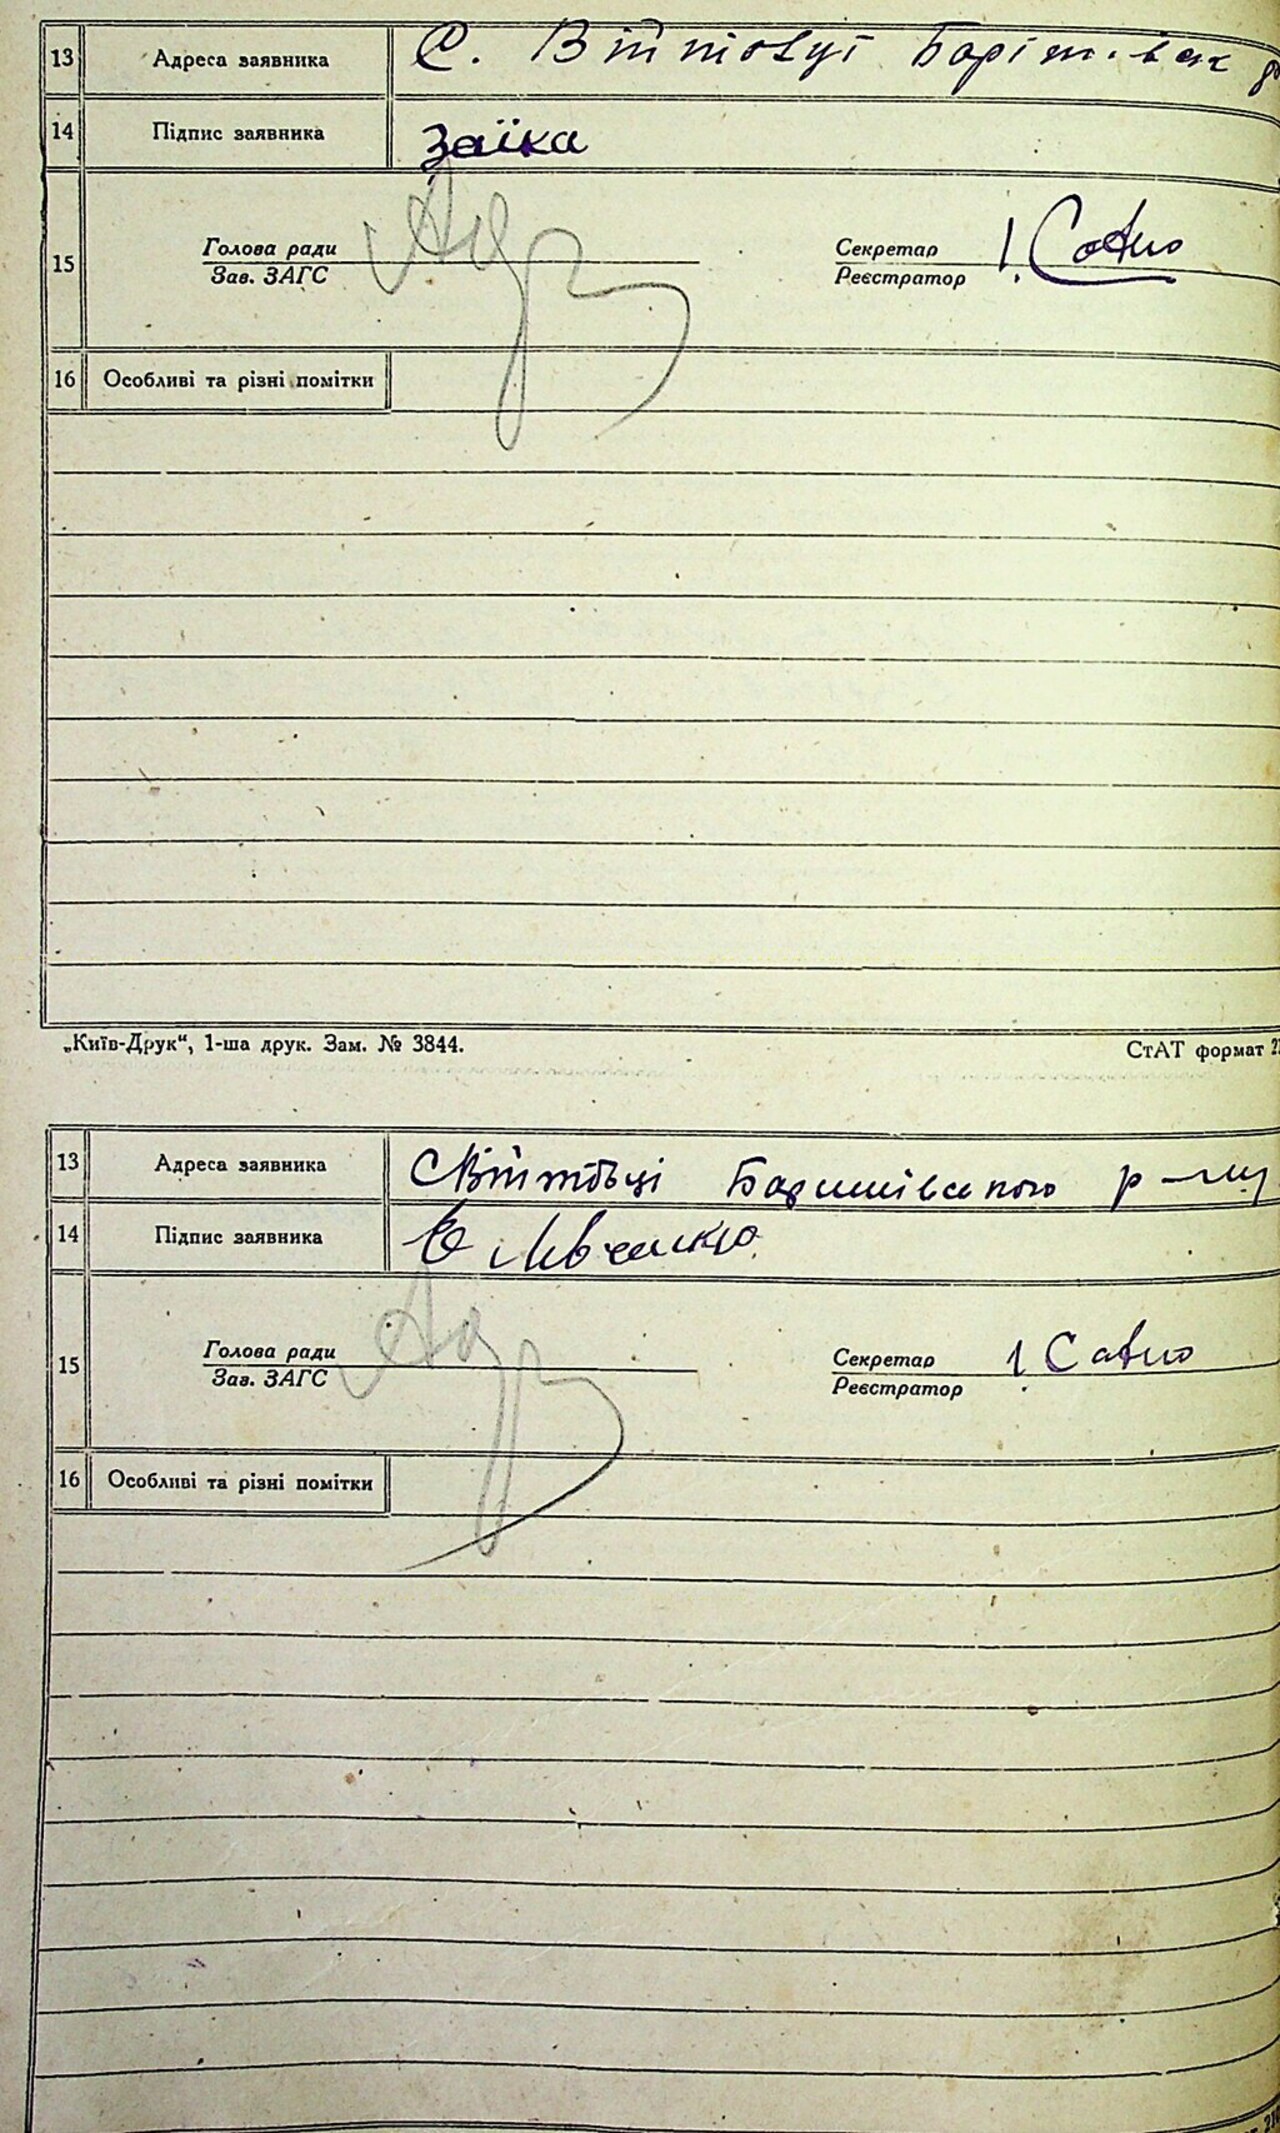 13 Адреса заявника С. Війтовці
14 Підпис заявника Заїка
15 Голова ради Секретар
Зав. ЗАГС Реєстратор
16 Особливі та різні помітки
„Київ-Друк“, 1-ша друк. Зам. № 3844. СтАТ формат
13 Адреса заявника Баришівського р-ну
14 Підпис заявника
15 Голова ради Секретар
Зав. ЗАГС Реєстратор
16 Особливі та різні помітки